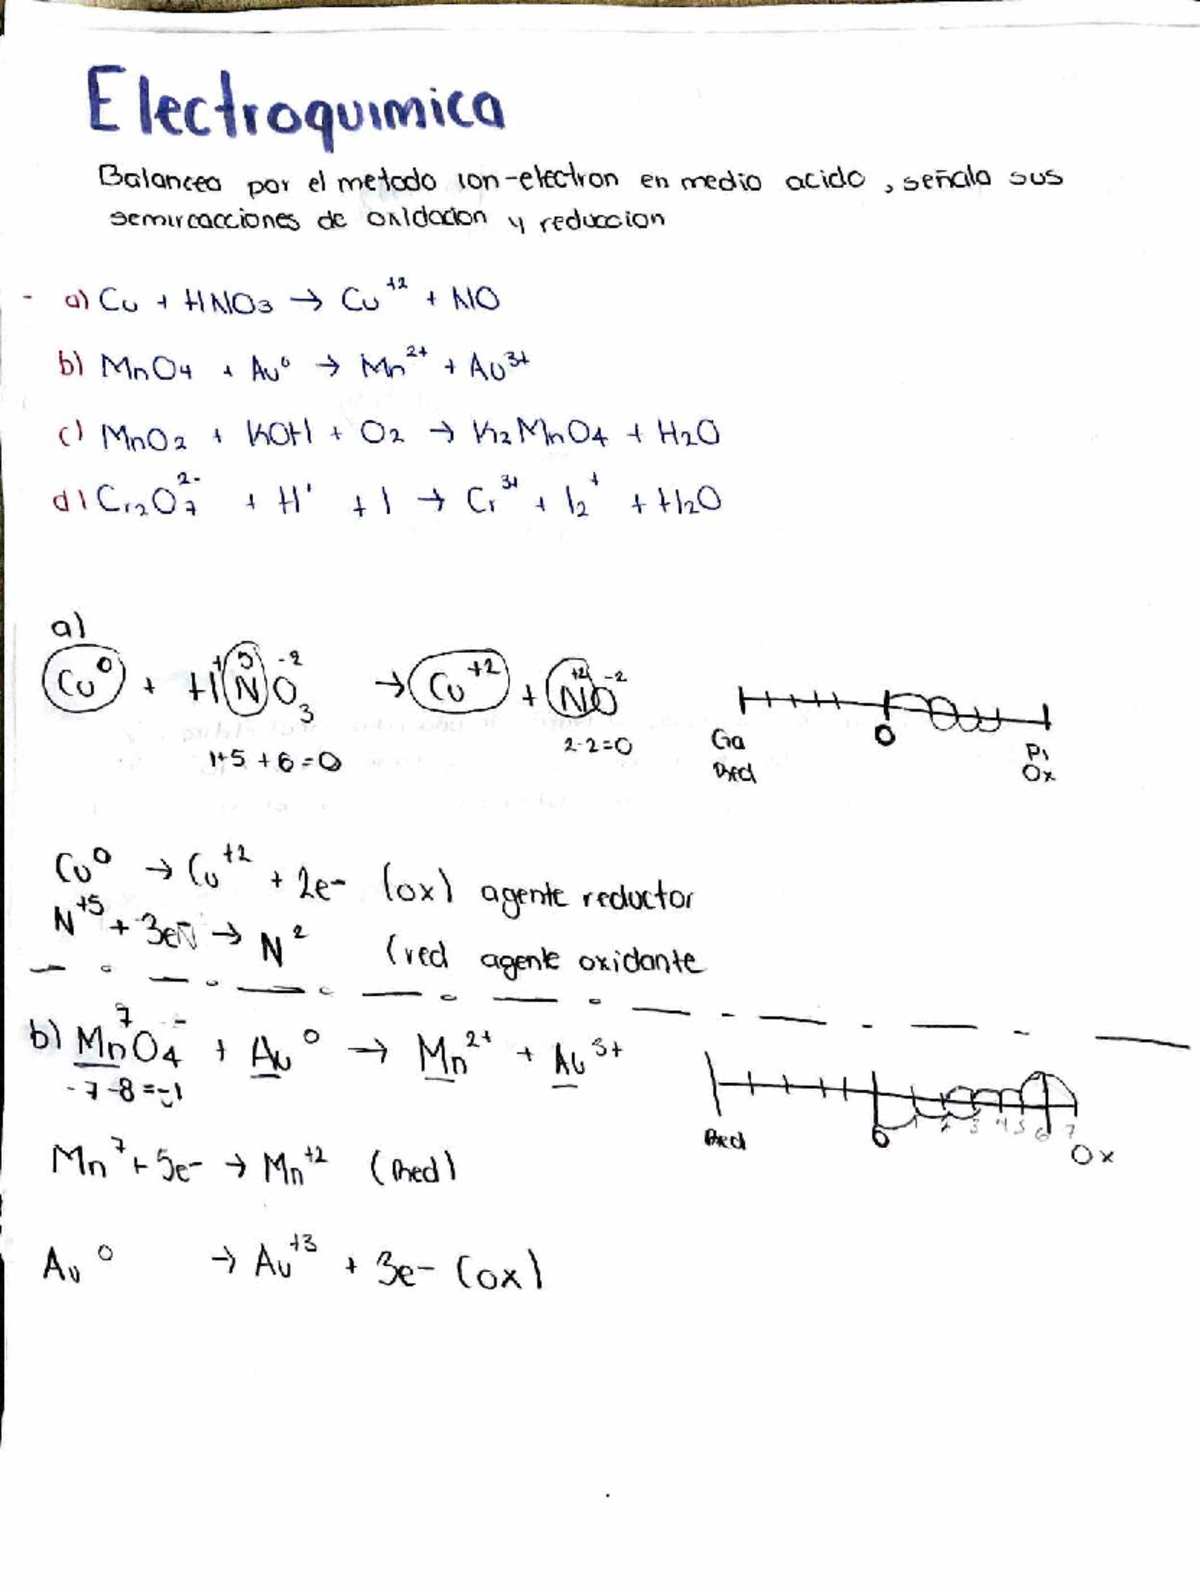 Electroquimica
Balancea por el metodo ion-electron en medio acido, señala sus
semireacciones de oxidacion y reduccion
- a) Cu + HNO3 → Cu+2 + NO
b) MnO4 + Au0 → Mn2+ + Au3+
c) MnO2 + KOH + O2 → K2MnO4 + H2O
d) Cr2O7 2- + H+ + I → Cr3+ + I2+ + H2O
a)
Cu0 + H+N5O3-2 → Cu+2 + N+2O-2
1+5+6=0
2-2=0
Ga 0 Pi
Red Ox
Cu0 → Cu+2 + 2e- (ox) agente reductor
N+5 + 3e → N2 (red agente oxidante
b) Mn7O4- + Au0 → Mn2+ + Au3+
-7-8=-1
Red 0 1 2 3 4 5 6 7
Ox
Mn7 + 5e- → Mn+2 (Red)
Au0 → Au+3 + 3e- (ox)